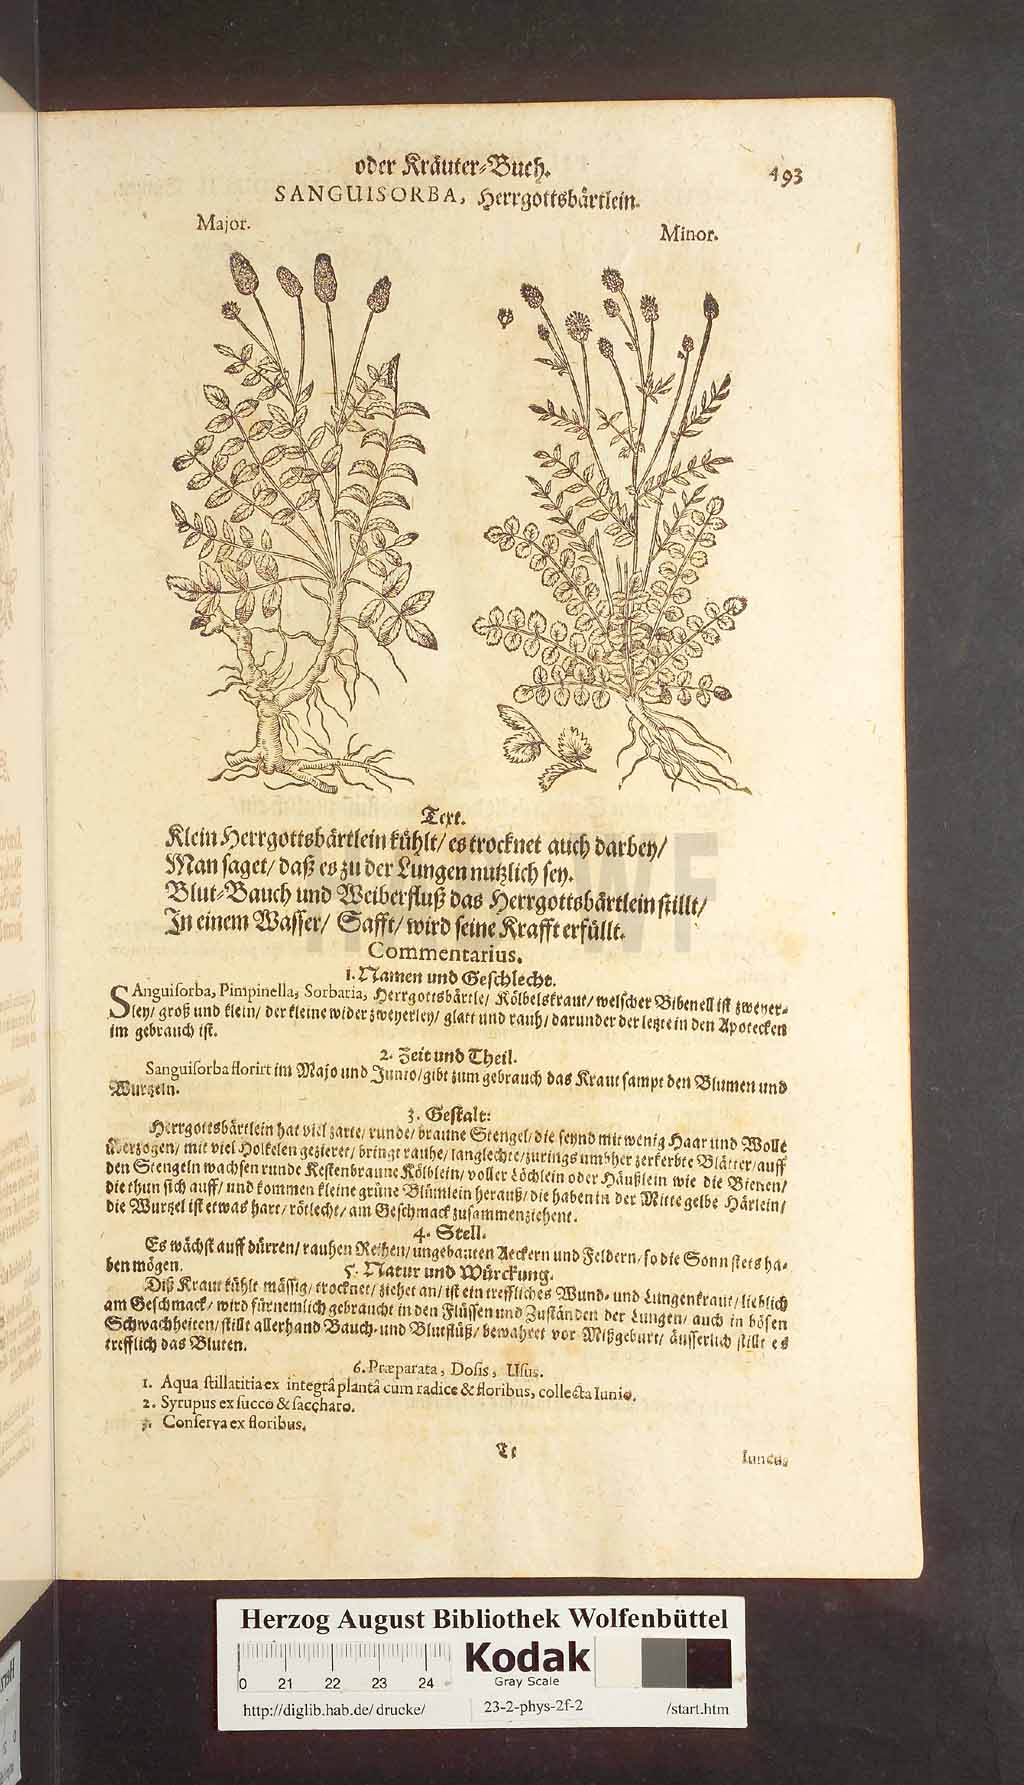 oder Kräuter-Buch.
493
SANGUISORBA, Herrgottsbärtlein.
Major.
Minor.
Text.
Klein Herrgottsbärtlein kühlt/ es trocknet auch darbey/
Man saget/ daß es zu der Lungen nutzlich sey.
Blut-Bauch und Weiberfluß das Herrgottsbärtlein stillt/
In einem Wasser/ Safft/ wird seine Krafft erfüllt.
Commentarius.
1. Namen und Geschlecht.
SAnguisorba, Pimpinella, Sorbaria, Herrgottsbärtle/ Kölbelskraut/ welscher Bibenell ist zweyer-
ley/ groß und klein/ der kleine wider zweyerley/ glatt und rauh/ darunder der letzte in den Apotecken
im gebrauch ist.
2. Zeit und Theil.
Sanguisorba florirt im Majo und Junio/ gibt zum gebrauch das Kraut sampt den Blumen und
Wurtzeln.
3. Gestalt:
Herrgottsbärtlein hat viel zarte/ runde/ braune Stengel/ die seynd mit wenig Haar und Wolle
überzogen/ mit viel Holkelen gezieret/ bringt rauhe/ langlechte/ zurings umbher zerkerbte Blätter/ auff
den Stengeln wachsen runde Kestenbraune Kölblein/ voller Löchlein oder Häußlein wie die Bienen/
die thun sich auff/ und kommen kleine grüne Blümlein herauß/ die haben in der Mitte gelbe Härlein/
die Wurtzel ist etwas hart/ rötlecht/ am Geschmack zusammenziehent.
4. Stell.
Es wächst auff dürren/ rauhen Reihen/ ungebauten Aeckern und Feldern/ so die Sonn stets ha-
ben mögen.
5. Natur und Würckung.
Diß Kraut kühlt mässig/ trocknet/ ziehet an/ ist ein treffliches Wund- und Lungenkraut/ lieblich
am Geschmack/ wird fürnemlich gebraucht in den Flüssen und Zuständen der Lungen/ auch in bösen
Schwachheiten/ stillt allerhand Bauch- und Blutflüß/ bewahret vor Mißgeburt/ äusserlich stillt es
trefflich das Bluten.
6. Præparata, Dosis, Usus.
1. Aqua stillatitia ex integrâ plantâ cum radice & floribus, collecta Iunio.
2. Syrupus ex succo & saccharo.
3. Conserva ex floribus.
Tt
Iuncus,
HAB WF
Herzog August Bibliothek Wolfenbüttel
0 21 22 23 24
Kodak
Gray Scale
http://diglib.hab.de/drucke/ 23-2-phys-2f-2 /start.htm